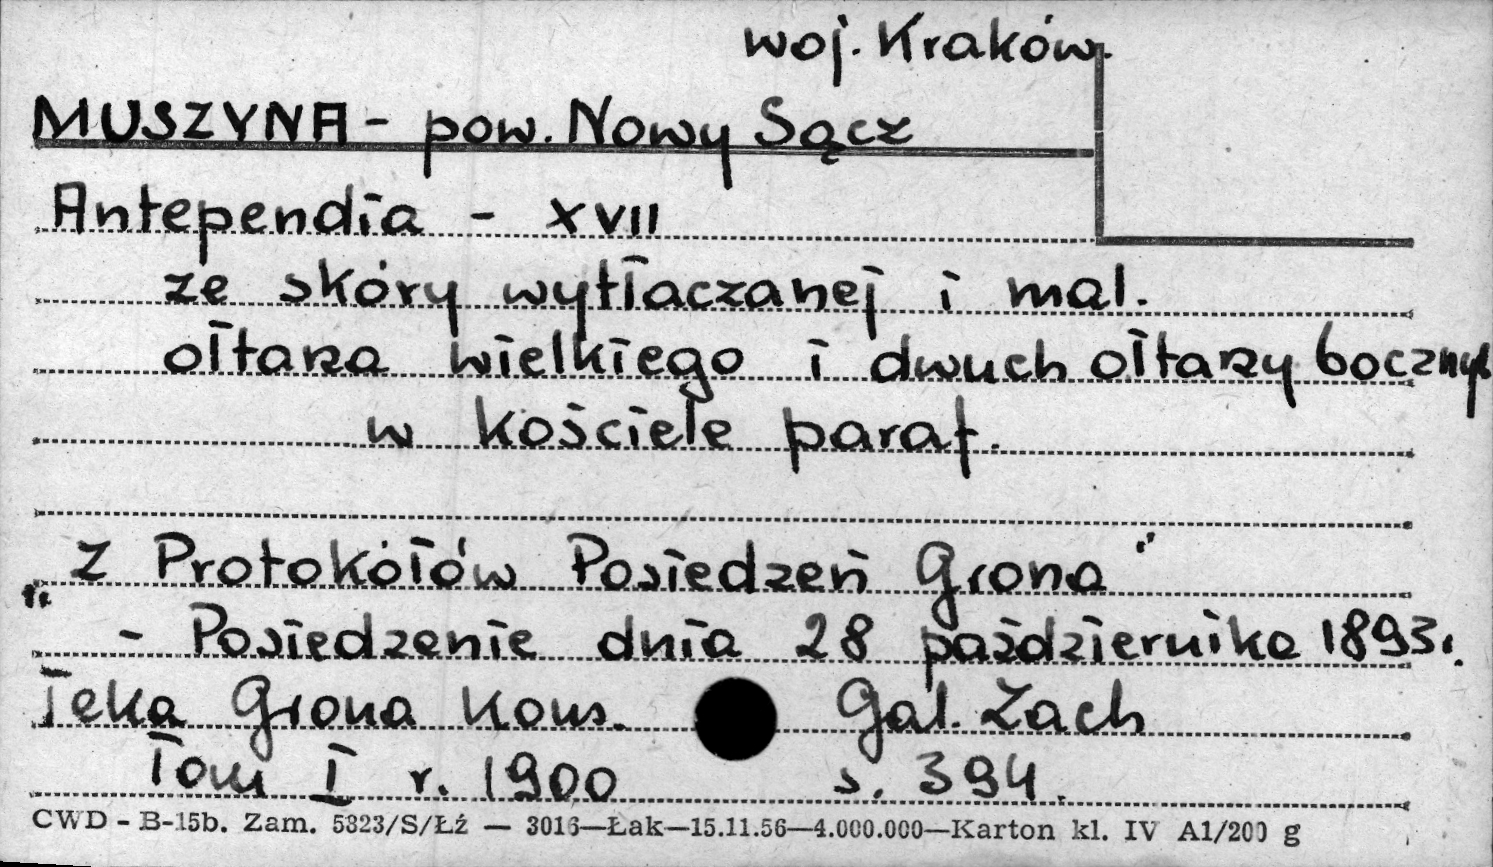 woj. Kraków.
MUSZYNA - pow. Nowy Sącz
Antependia - XVII
ze skóry wytłaczanej i mal.
ołtarza wielkiego i dwuch ołtarzy bocznych
w kościele paraf.
"Z Protokółów Posiedzeń Grona"
- Posiedzenie dnia 28 października 1893r.
Teka Grona Kons. Gal. Zach
Tom I r. 1900 s. 394.
CWD - B-15b. Zam. 5323/S/Łź — 3016—Łak—15.11.56—4.000.000—Karton kl. IV A1/200 g